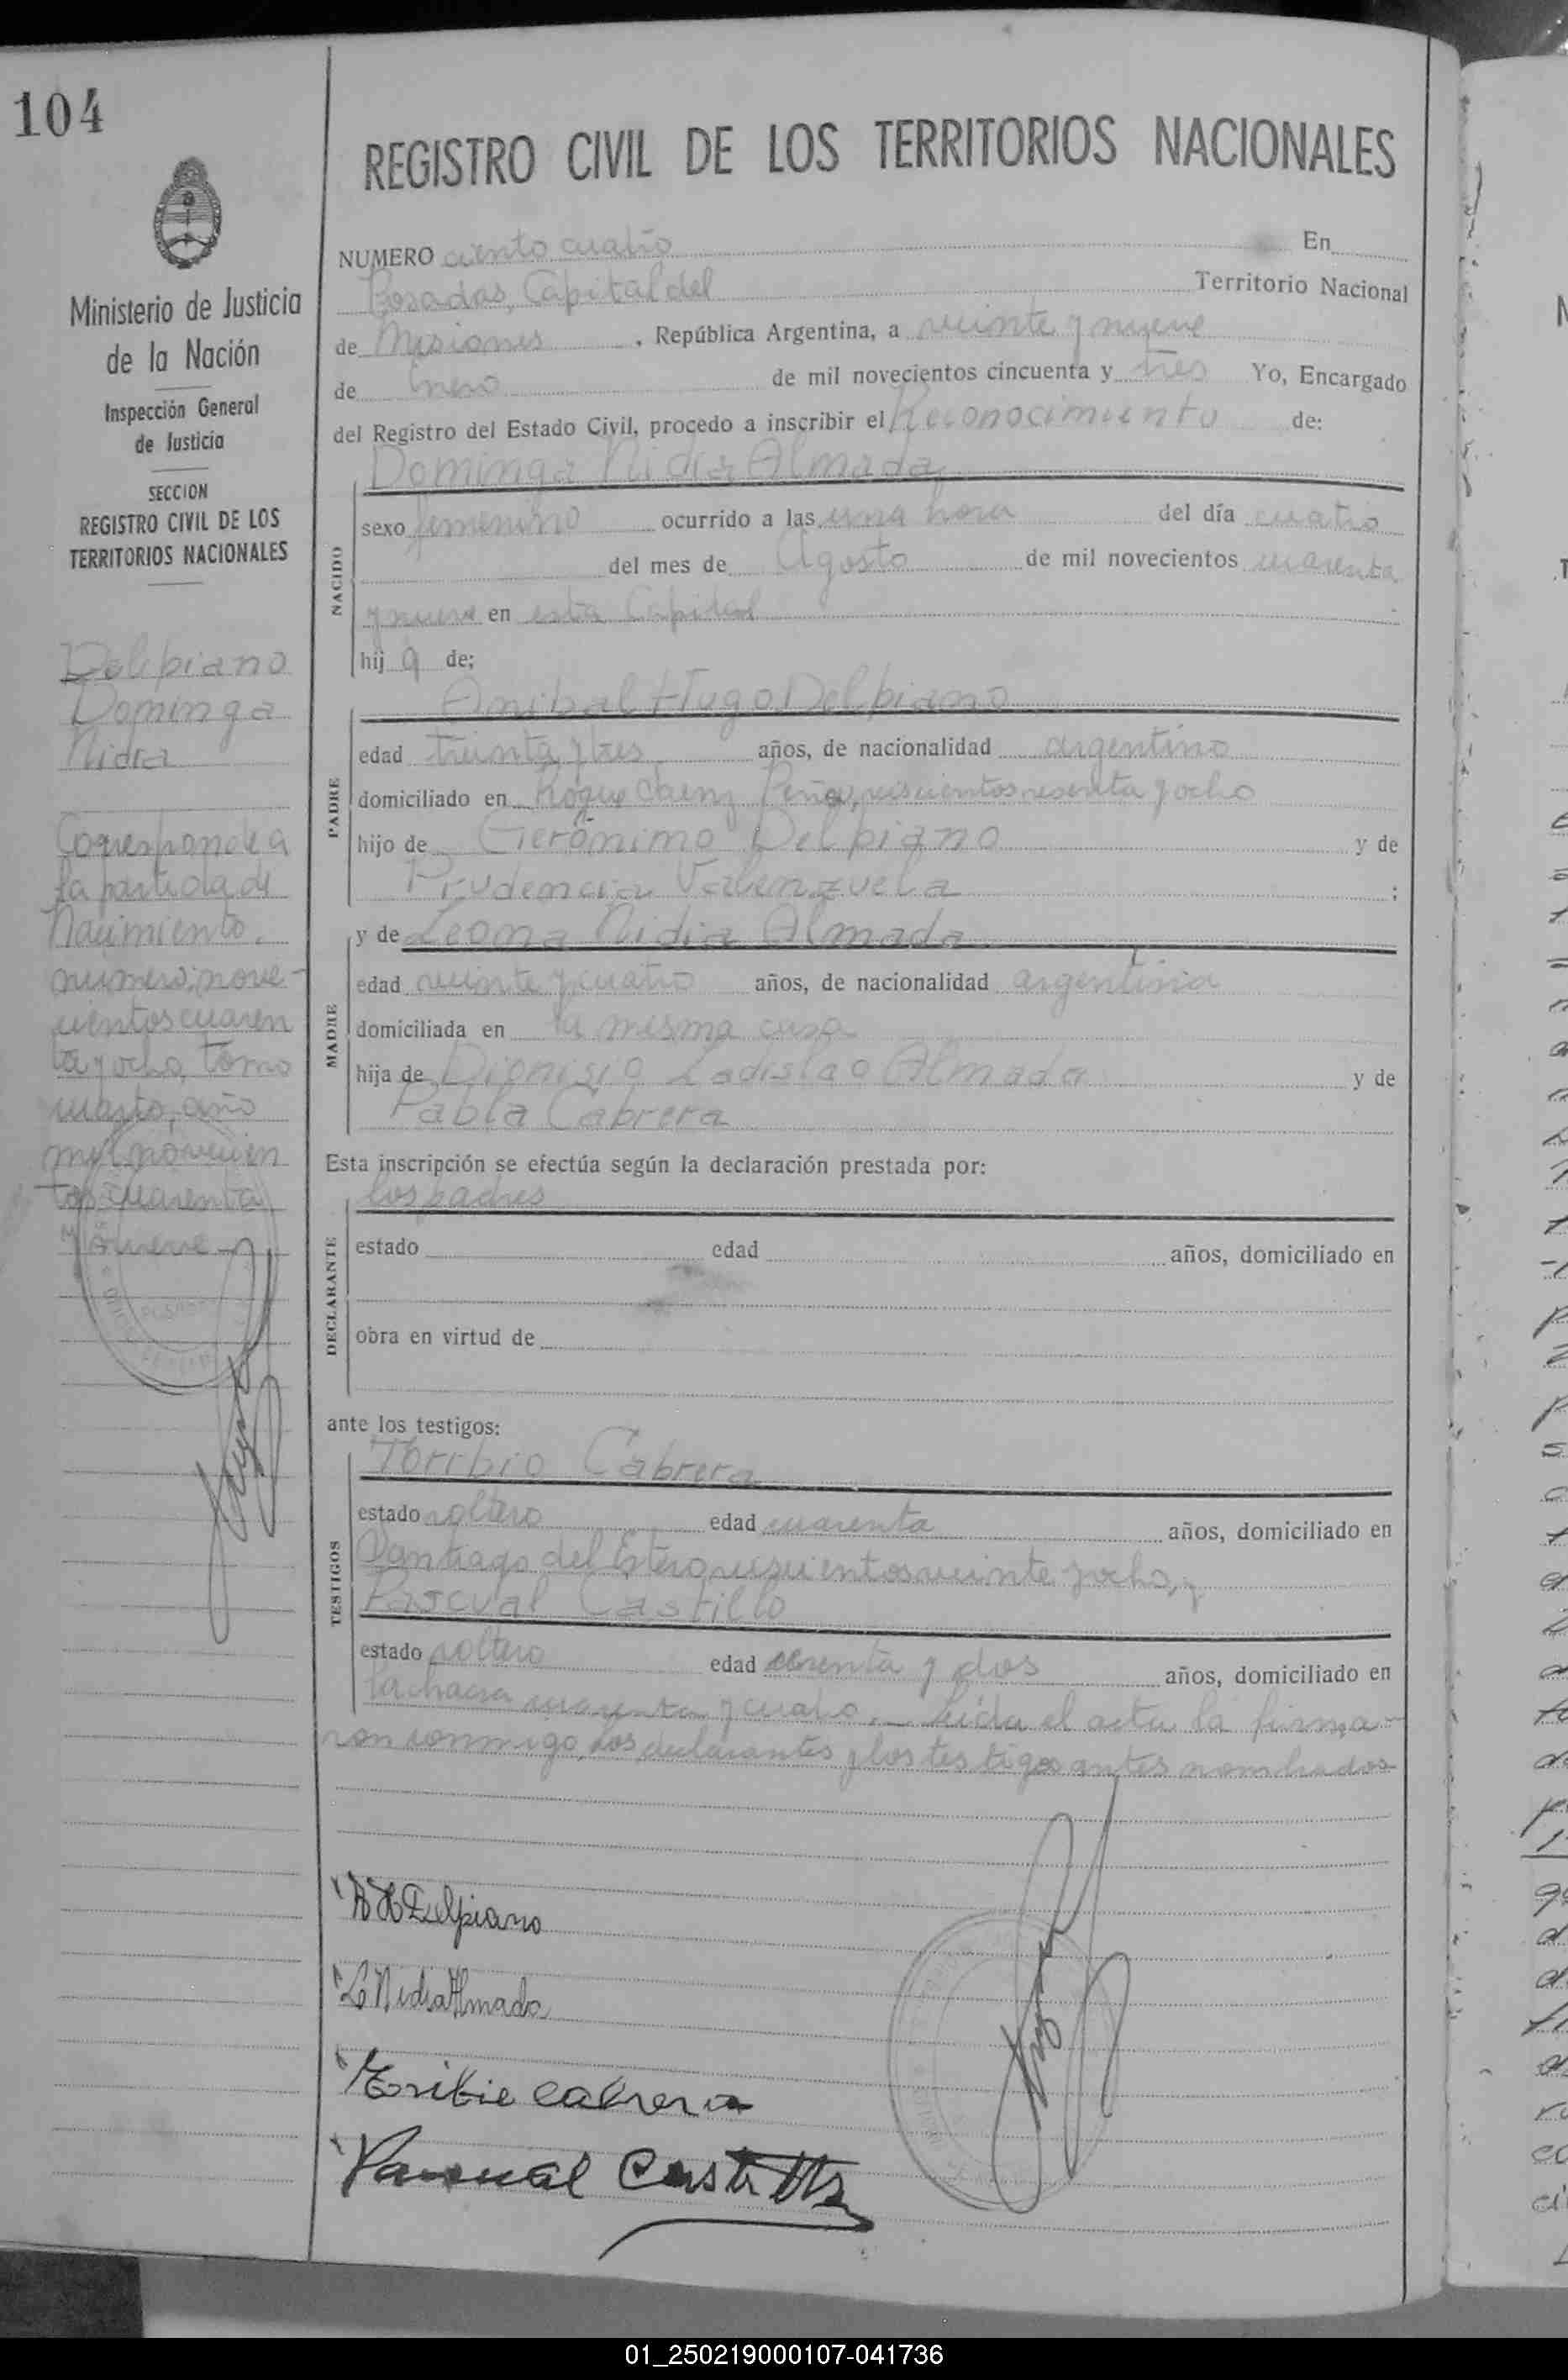 104
REGISTRO CIVIL DE LOS TERRITORIOS NACIONALES
Ministerio de Justicia
de la Nación
Inspección General
de Justicia
SECCION
REGISTRO CIVIL DE LOS
TERRITORIOS NACIONALES
Delpiano
Dominga
Nidia
Corresponde a
la partida de
Nacimiento.
número; nove-
cientos cuaren
ta y ocho, tomo
cuarto, año
mil novecien
tos cuarenta
y nueve
NUMERO ciento cuatro En
Posadas, Capital del Territorio Nacional
de Misiones , República Argentina, a veinte y nueve
de Enero de mil novecientos cincuenta y tres Yo, Encargado
del Registro del Estado Civil, procedo a inscribir el Reconocimiento de:
Dominga Nidia Almada
NACIDO
sexo femenino ocurrido a las una hora del día cuatro
del mes de Agosto de mil novecientos cuarenta
y nueve en esta Capital
hija de;
PADRE
Anibal Hugo Delpiano
edad treinta y tres años, de nacionalidad argentino
domiciliado en Roque Saenz Peña, seiscientos sesenta y ocho
hijo de Gerónimo Delpiano y de
Prudencia Valenzuela ;
MADRE
y de Leona Nidia Almada
edad veinte y cuatro años, de nacionalidad argentina
domiciliada en la misma casa
hija de Dionisio Ladislao Almada y de
Pabla Cabrera
Esta inscripción se efectúa según la declaración prestada por:
DECLARANTE
los padres
estado edad años, domiciliado en
obra en virtud de
ante los testigos:
TESTIGOS
Toribio Cabrera
estado soltero edad cuarenta años, domiciliado en
Santiago del Estero veinte y ocho, y
Pascual Castillo
estado soltero edad y dos años, domiciliado en
la chacra cuarenta y cuatro.- Leída el acta la firma-
ron conmigo, los declarantes y los testigos antes nombrados
A H Delpiano
L Nidia Almada
Toribio Cabrera
Pascual Castillo
01_250219000107-041736